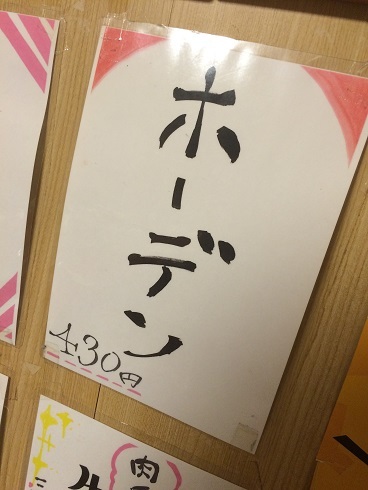 ホーデン
430円
肉